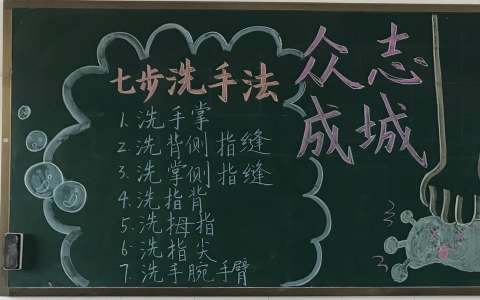 七步洗手法
1. 洗手掌
2. 洗背侧指缝
3. 洗掌侧指缝
4. 洗指背
5. 洗拇指
6. 洗指尖
7. 洗手腕手臂
众志
成城